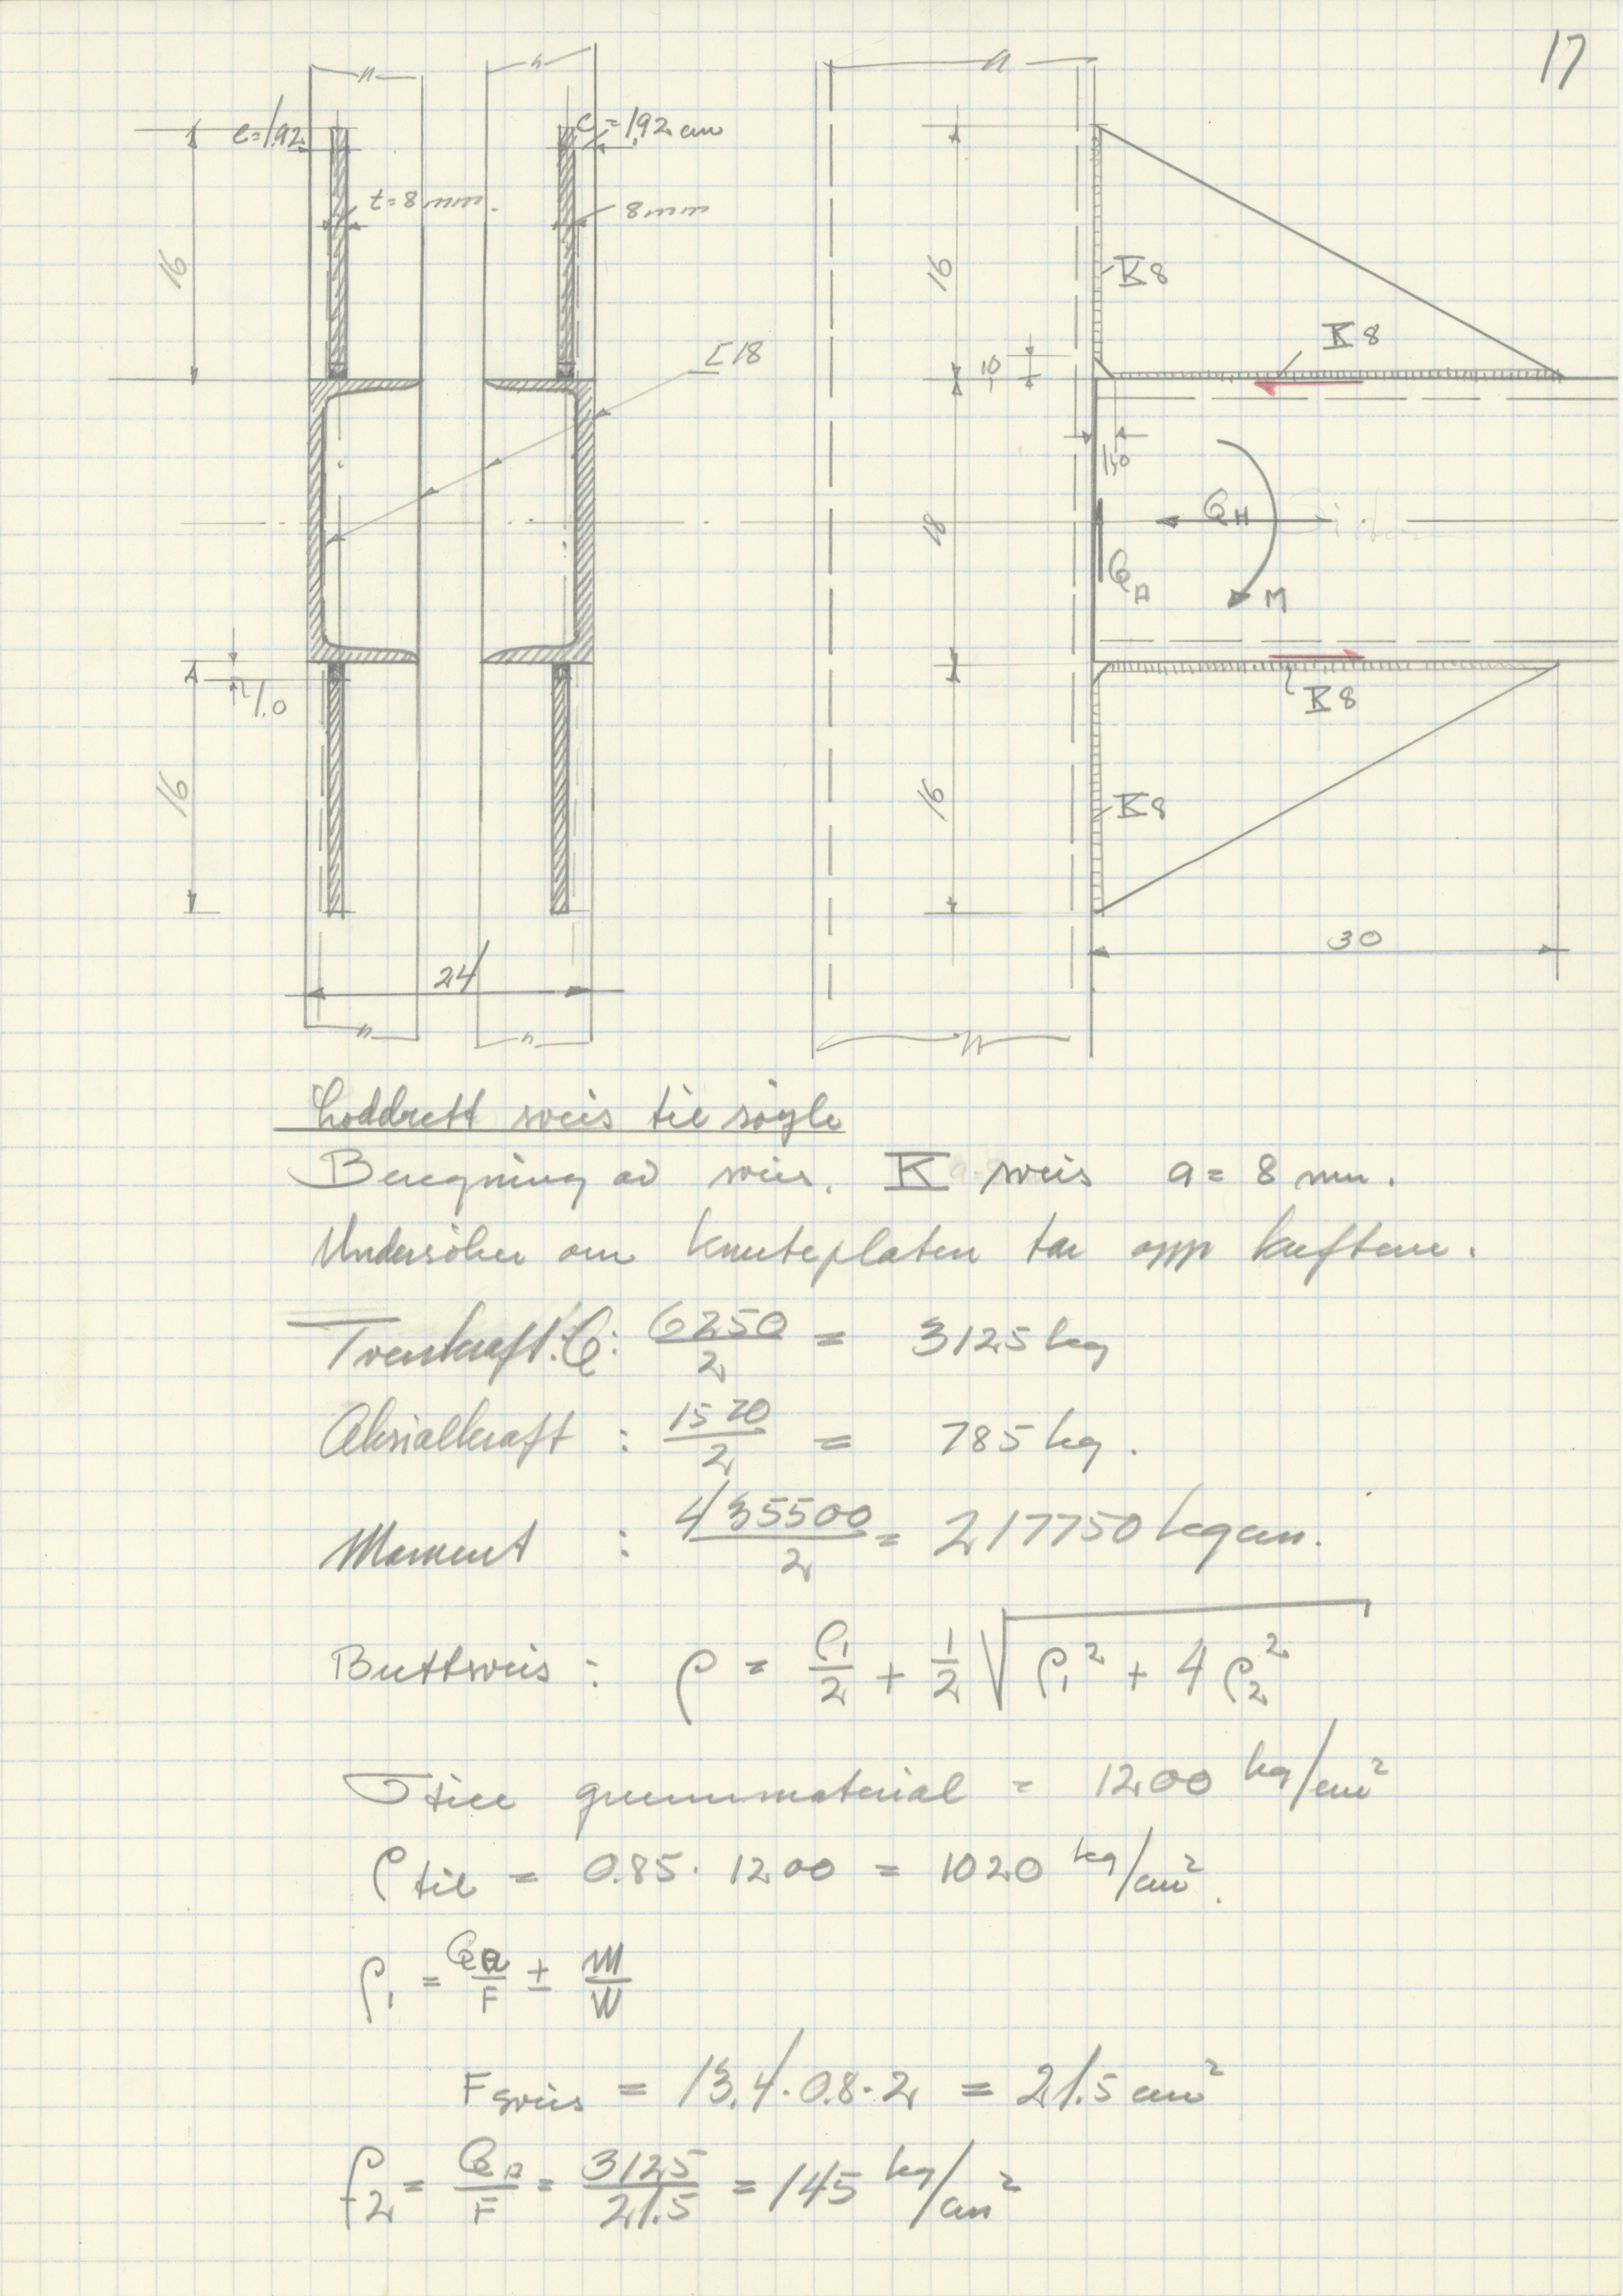 17
e=1,92
e=1,92 cm
t=8 mm.
8mm
16
[18
16
K8
K8
10
1,0
18
Q_H
Q_A
M
1.0
K8
16
16
K8
30
24
Loddrett sveis til søyle
Beregning av sveis. K sveis a = 8 mm.
Undersøker om knuteplaten tar opp kreftene.
Tverrkraft: Q: 6250/2 = 3125 kg
Aksialkraft : 1570/2 = 785 kg.
Moment : 435500/2 = 217750 kgcm.
Buttsveis : ρ = ρ₁/2 + 1/2 √(ρ₁² + 4ρ₂²)
σ till grunnmaterial = 1200 kg/cm²
ρ till = 0.85 · 1200 = 1020 kg/cm².
ρ₁ = Q_H/F ± M/W
F sveis = 13,4 · 0.8 · 2 = 21.5 cm²
ρ₂ = Q_A/F = 3125/21.5 = 145 kg/cm²